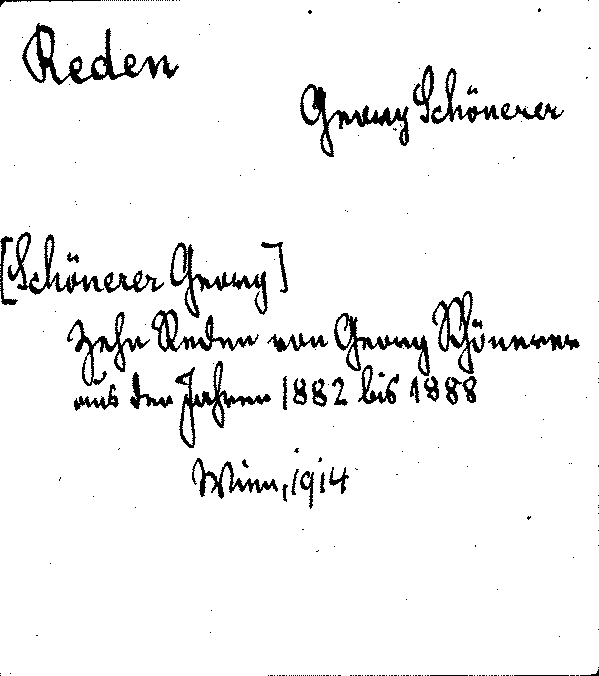 Reden
Georg Schönerer
[Schönerer Georg]
Zehn Reden von Georg Schönerer
aus den Jahren 1882 bis 1888
Wien, 1914